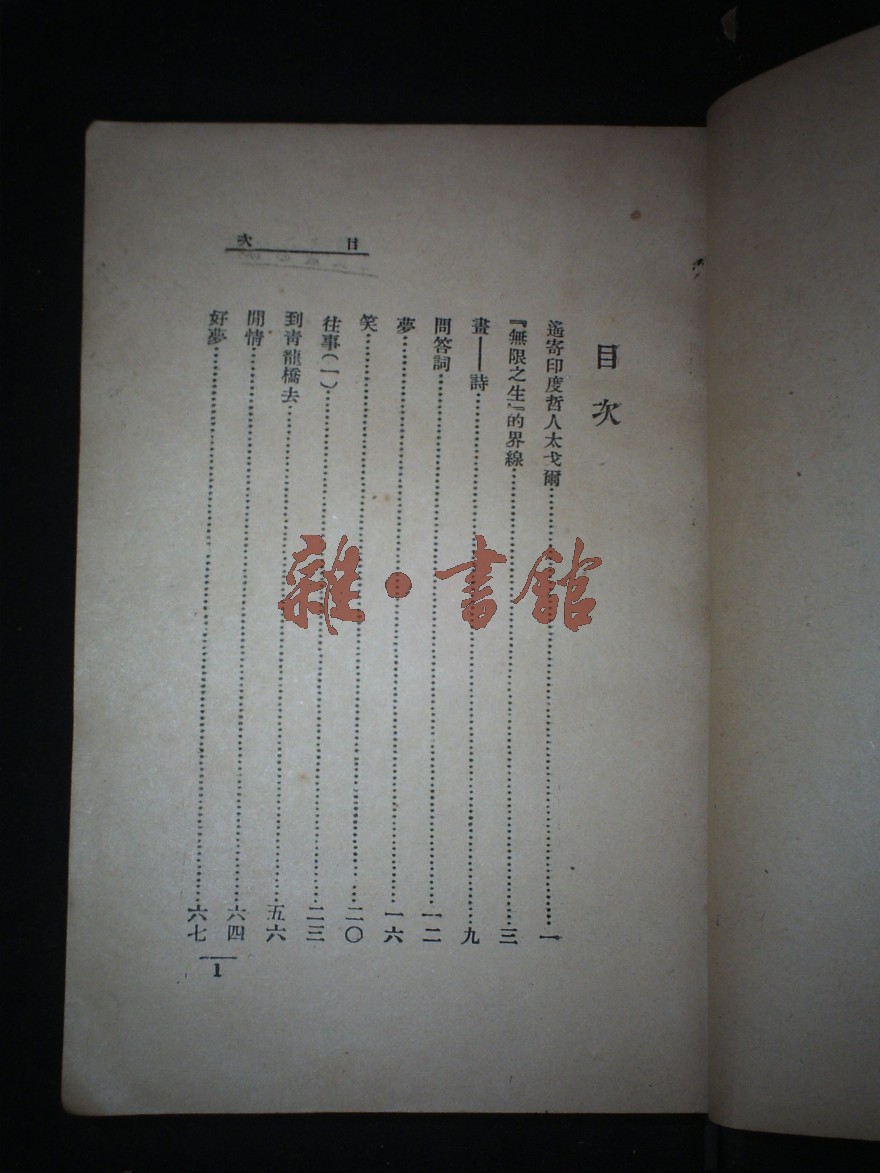 目次
目次
遙寄印度哲人太戈爾……一
『無限之生』的界線……三
畫——詩……九
問答詞……一二
夢……一六
笑……二〇
往事(一)……二三
到靑龍橋去……五六
閒情……六四
好夢……六七
1
雜·書館